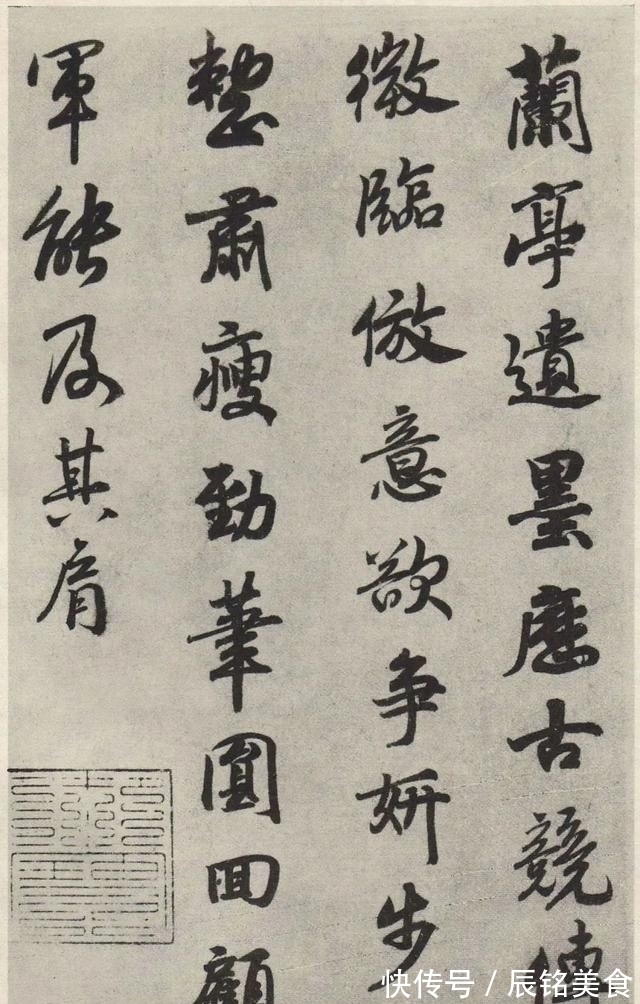 蘭亭遺墨歷古競傳
微臨倣意欲争妍步
整肅瘦勁筆圓囬顧
軍能及其肩
快传号 / 辰铭美食